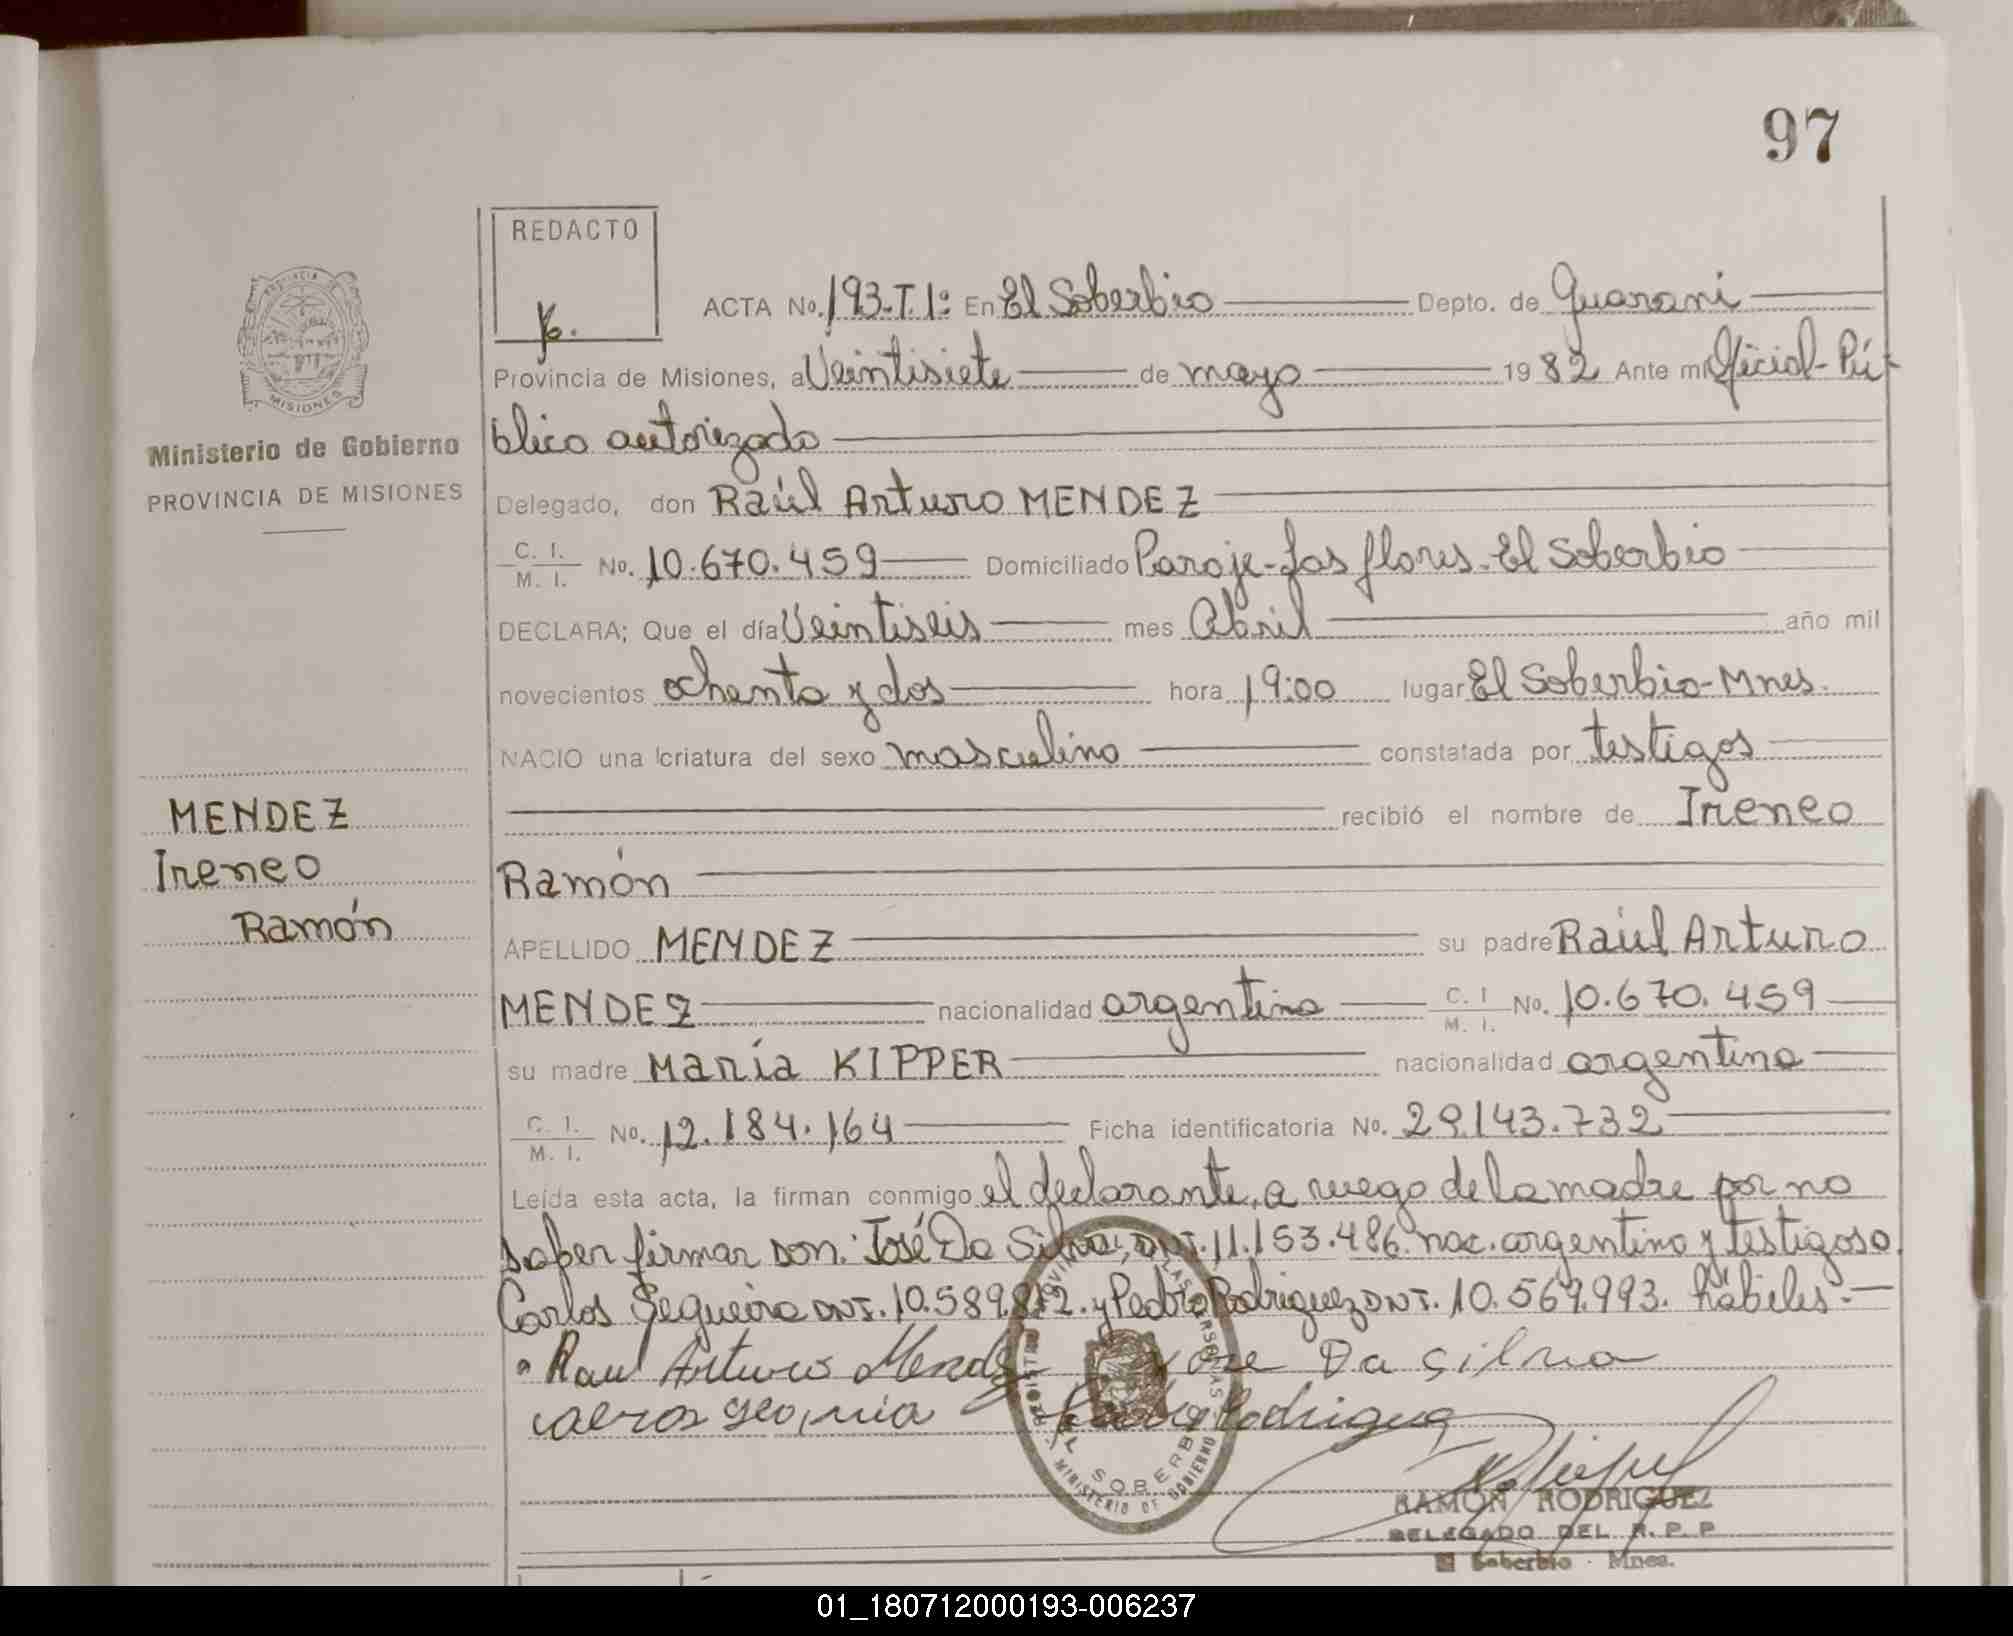 97
REDACTO
ACTA No. 193-T.1º En El Soberbio Depto. de Guarani
Provincia de Misiones, a Veintisiete de mayo 1982 Ante mi Oficial-Pú-
blico autorizado
Ministerio de Gobierno
PROVINCIA DE MISIONES
Delegado, don Raúl Arturo MENDEZ
C. I. M. I. No. 10.670.459 Domiciliado Paraje-Las flores-El Soberbio
DECLARA; Que el día Veintiseis mes Abril año mil
novecientos ochenta y dos hora 19:00 lugar El Soberbio-Mnes.
NACIO una criatura del sexo masculino constatada por testigos
recibió el nombre de Ireneo
Ramón
MENDEZ
Ireneo
Ramón
APELLIDO MENDEZ su padre Raúl Arturo
MENDEZ nacionalidad argentina C. I M. I. No. 10.670.459
su madre María KIPPER nacionalidad argentina
C. I. M. I. No. 12.184.164 Ficha identificatoria No. 29.143.732
Leída esta acta, la firman conmigo el declarante, a ruego de la madre por no
saber firmar don: José Da Silva, DNI. 11.153.486. nac. argentino y testigos
Carlos Sequeira DNI. 10.589.812. y Pedro Rodriguez DNI. 10.569.993. hábiles.-
Raul Arturo Mendez Jose Da silva
Pedro Rodriguez
SOBERBIO
MINISTERIO DE GOBIERNO
RAMON RODRIGUEZ
DELEGADO DEL R. P. P
El Soberbio - Mnes.
01_180712000193-006237